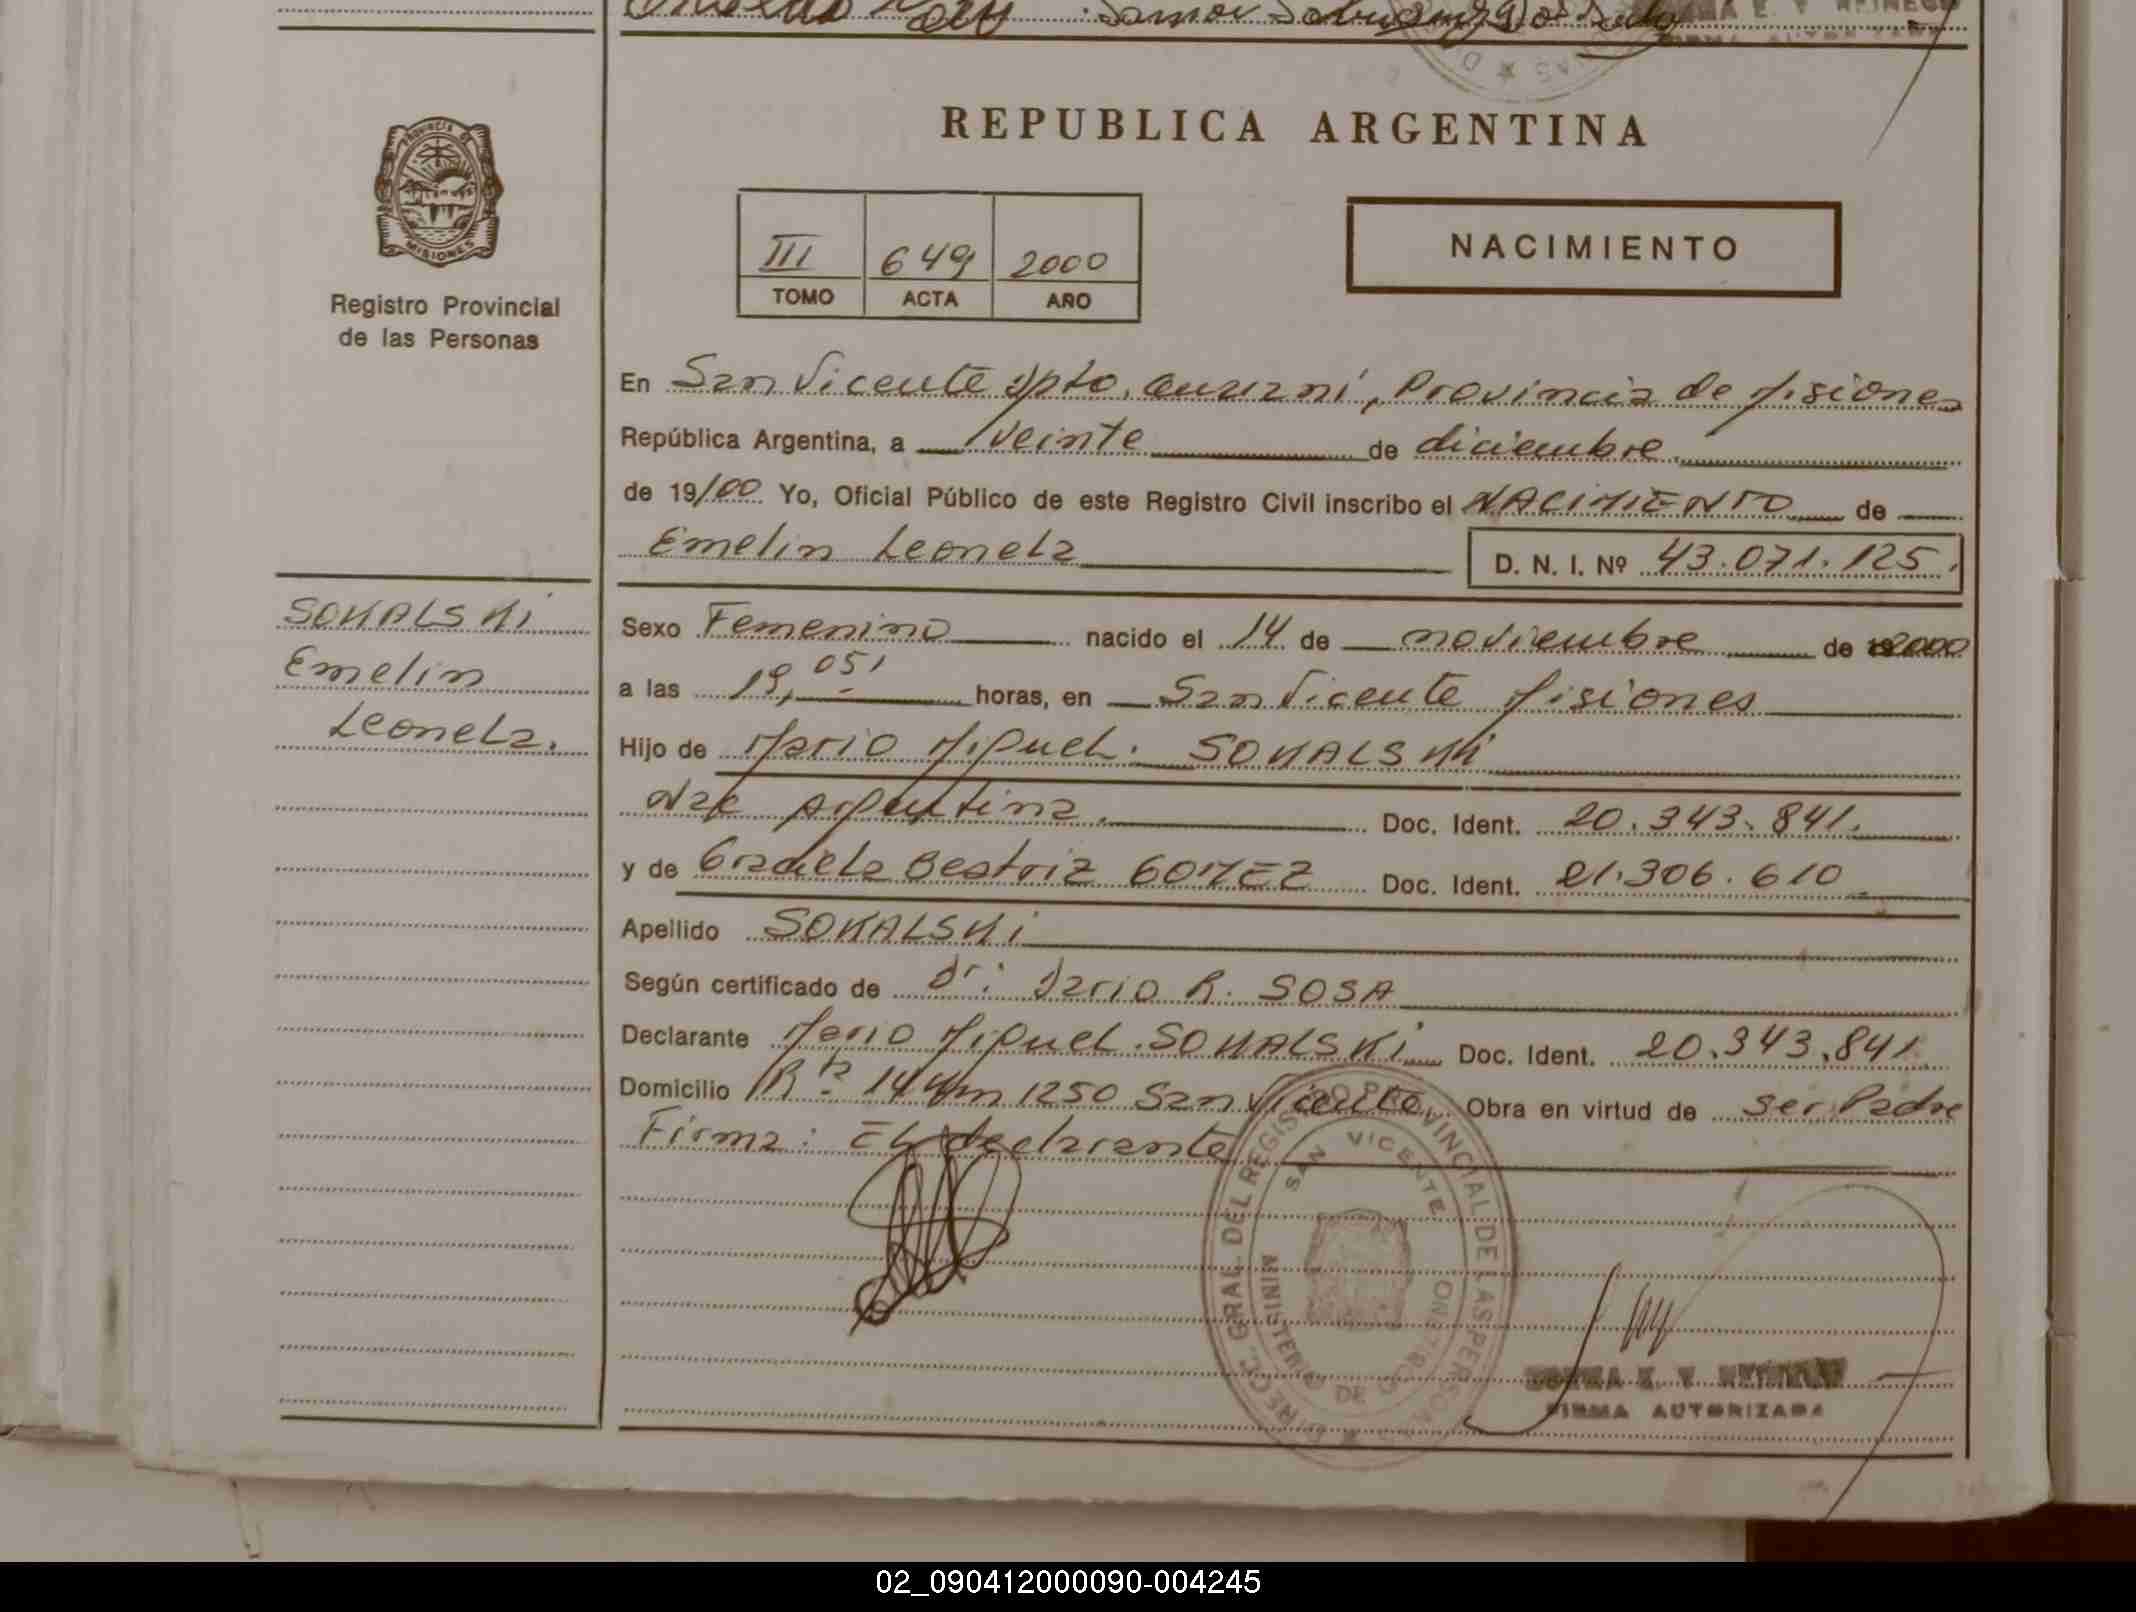 REPUBLICA ARGENTINA
PROVINCIA DE
MISIONES
Registro Provincial
de las Personas
III 649 2000
TOMO ACTA AÑO
NACIMIENTO
En San Vicente Dpto. Guarani, Provincia de Misiones
República Argentina, a veinte de diciembre
de 19/00 Yo, Oficial Público de este Registro Civil inscribo el NACIMIENTO de
Emelin Leonela
D. N. I. Nº 43.071.125.
SOKALSKi
Emelin
Leonela.
Sexo Femenino nacido el 14 de noviembre de 2000
a las 19,05' horas, en San Vicente Misiones
Hijo de Mario Miguel. SOKALSKi
Nac Argentina. Doc. Ident. 20.343.841.
y de Graciela Beatriz GOMEZ Doc. Ident. 21.306.610
Apellido SOKALSKi
Según certificado de dr: Dario R. SOSA
Declarante Mario Miguel. SOKALSKi Doc. Ident. 20.343.841
Domicilio Rta 14 Km 1250 San Vicente, Obra en virtud de ser Padre
Firma: El declarante
DIRECC. GRAL. DEL REGISTRO PROVINCIAL DE LAS PERSONAS
SAN VICENTE
MINISTERIO DE GOBIERNO
FIRMA AUTORIZADA
02_090412000090-004245